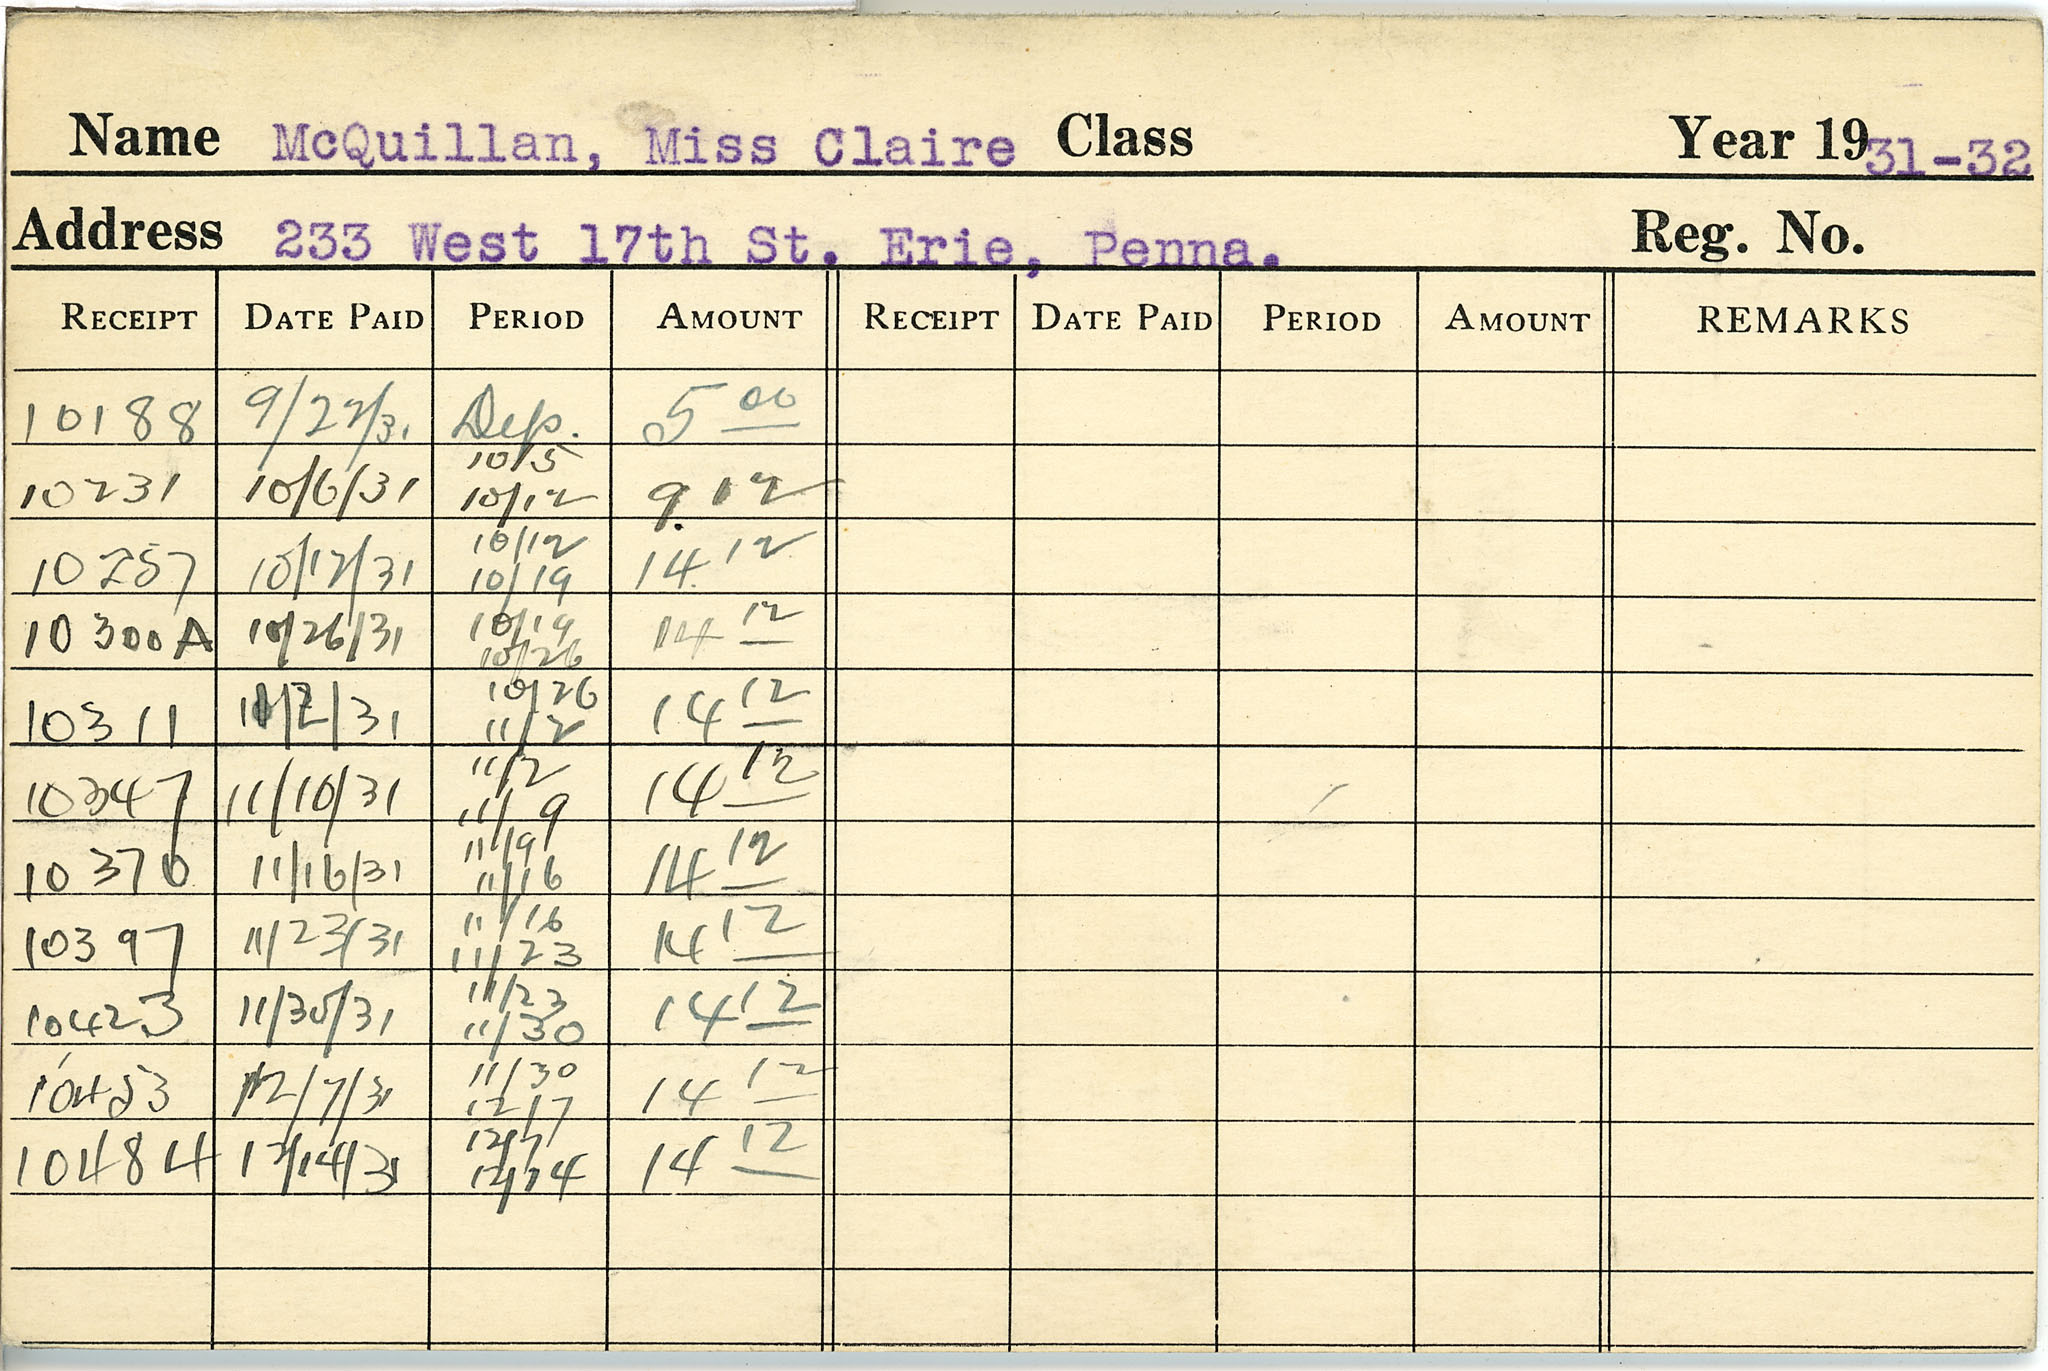 Name McQuillan, Miss Claire Class Year 1931-32
Address 233 West 17th St. Erie, Penna. Reg. No.
RECEIPT DATE PAID PERIOD AMOUNT RECEIPT DATE PAID PERIOD AMOUNT REMARKS
10188 9/22/31 Dep. 5 00
10/5
10231 10/6/31 10/12 9.12
10/12
10257 10/12/31 10/19 14.12
10/19
10300A 10/26/31 10/26 14 12
10/26
10311 11/2/31 11/2 14 12
11/2
10347 11/10/31 11/9 14 12
11/9
10370 11/16/31 11/16 14 12
11/16
10397 11/23/31 11/23 14 12
11/23
10423 11/30/31 11/30 14 12
11/30
10453 12/7/31 12/7 14 12
12/7
10484 12/14/31 12/14 14 12